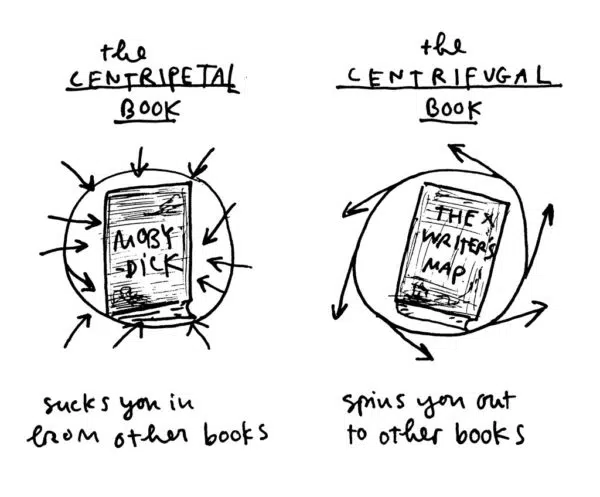 the
CENTRIPETAL
BOOK
MOBY
-DICK
sucks you in
from other books
the
CENTRIFUGAL
BOOK
THE
WRITER'S
MAP
spins you out
to other books